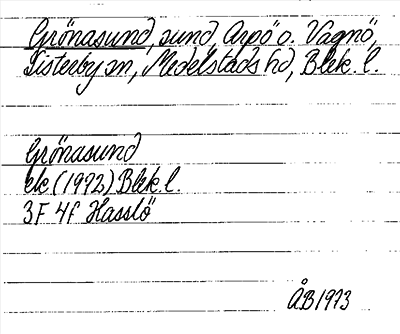 Grönasund, sund, Arpö o. Vagnö,
Listerby sn, Medelstads hd, Blek. l.
Grönasund
ek. (1972) Blek. l.
3F 4f Hasslö
ÅB 1973